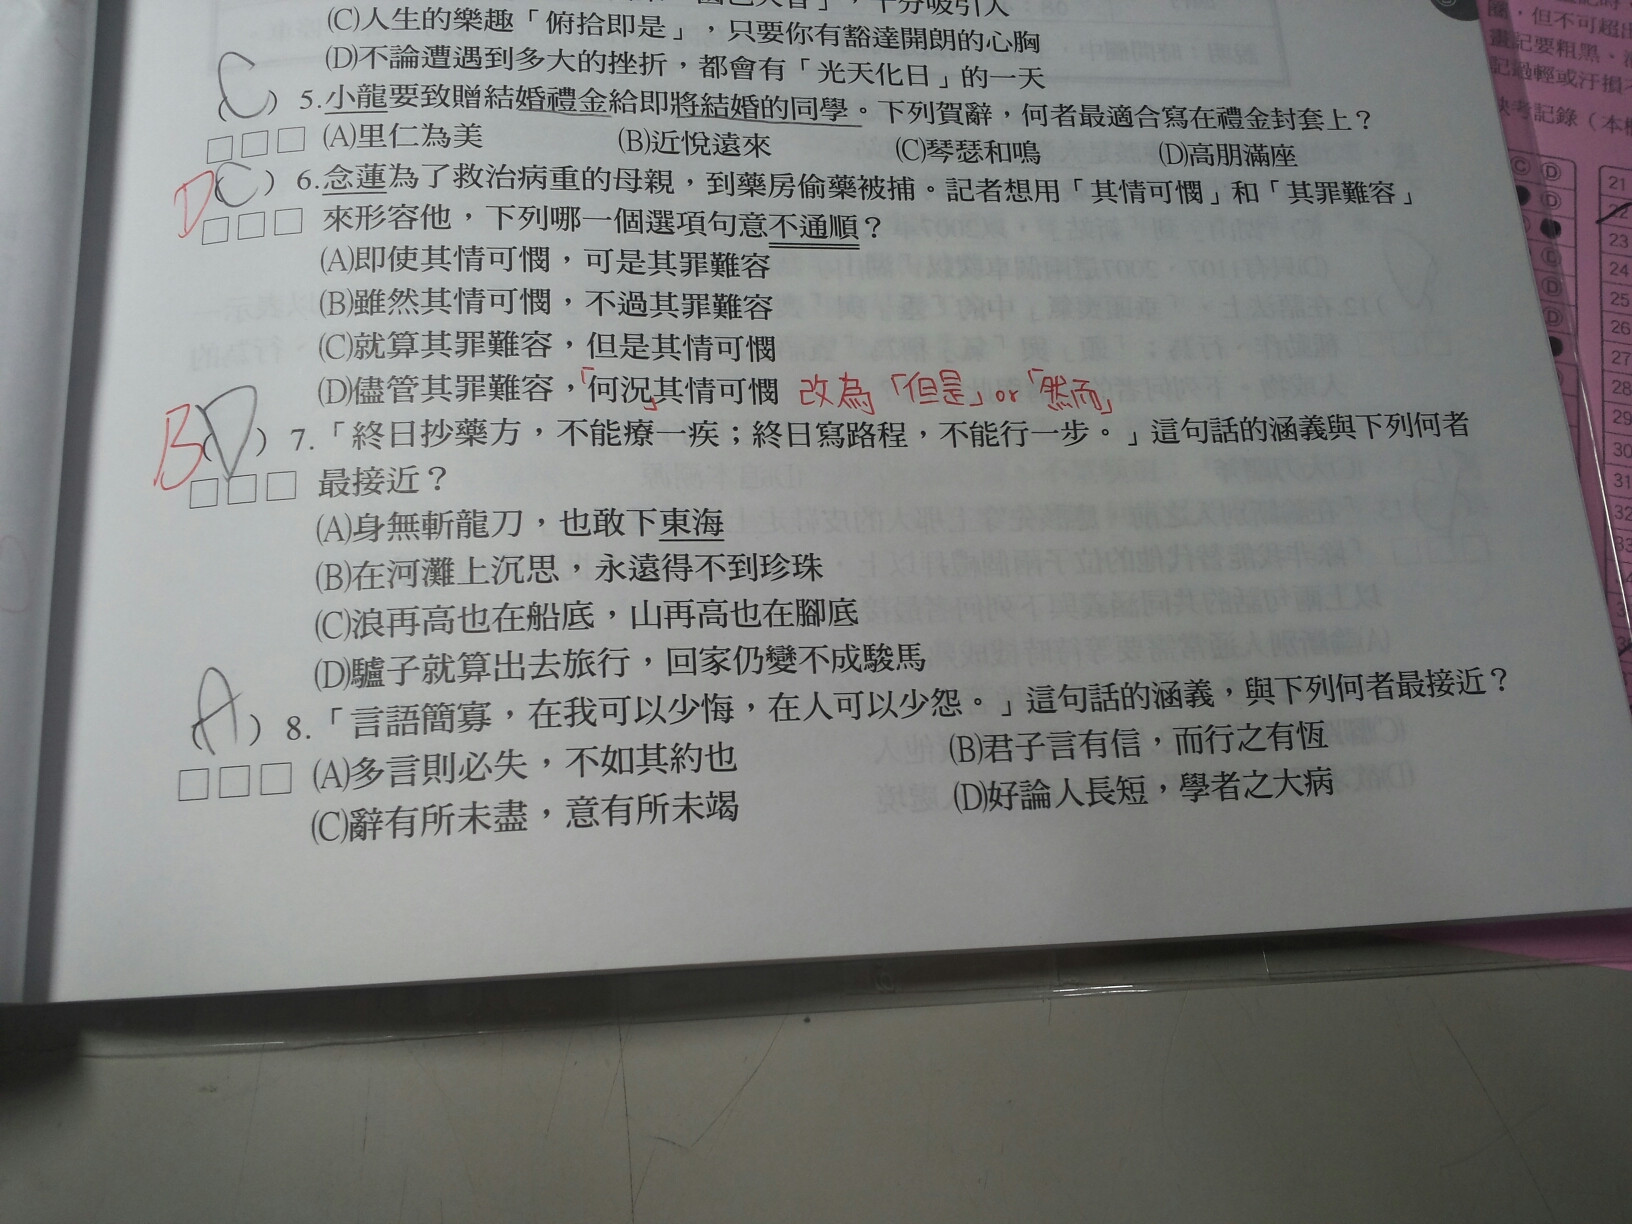 (C)人生的樂趣「俯拾即是」，只要你有豁達開朗的心胸
(D)不論遭遇到多大的挫折，都會有「光天化日」的一天
(C) 5.小龍要致贈結婚禮金給即將結婚的同學。下列賀辭，何者最適合寫在禮金封套上？
□□□ (A)里仁為美 (B)近悅遠來 (C)琴瑟和鳴 (D)高朋滿座
D (C) 6.念蓮為了救治病重的母親，到藥房偷藥被捕。記者想用「其情可憫」和「其罪難容」
□□□ 來形容他，下列哪一個選項句意不通順？
(A)即使其情可憫，可是其罪難容
(B)雖然其情可憫，不過其罪難容
(C)就算其罪難容，但是其情可憫
(D)儘管其罪難容，「何況」其情可憫 改為「但是」or「然而」
B (D) 7.「終日抄藥方，不能療一疾；終日寫路程，不能行一步。」這句話的涵義與下列何者
□□□ 最接近？
(A)身無斬龍刀，也敢下東海
(B)在河灘上沉思，永遠得不到珍珠
(C)浪再高也在船底，山再高也在腳底
(D)驢子就算出去旅行，回家仍變不成駿馬
(A) 8.「言語簡寡，在我可以少悔，在人可以少怨。」這句話的涵義，與下列何者最接近？
□□□ (A)多言則必失，不如其約也 (B)君子言有信，而行之有恆
(C)辭有所未盡，意有所未竭 (D)好論人長短，學者之大病
但不可超出
畫記要粗黑
記過輕或汙損
缺考記錄（本
21
22
23
24
25
26
27
28
29
30
31
32
33